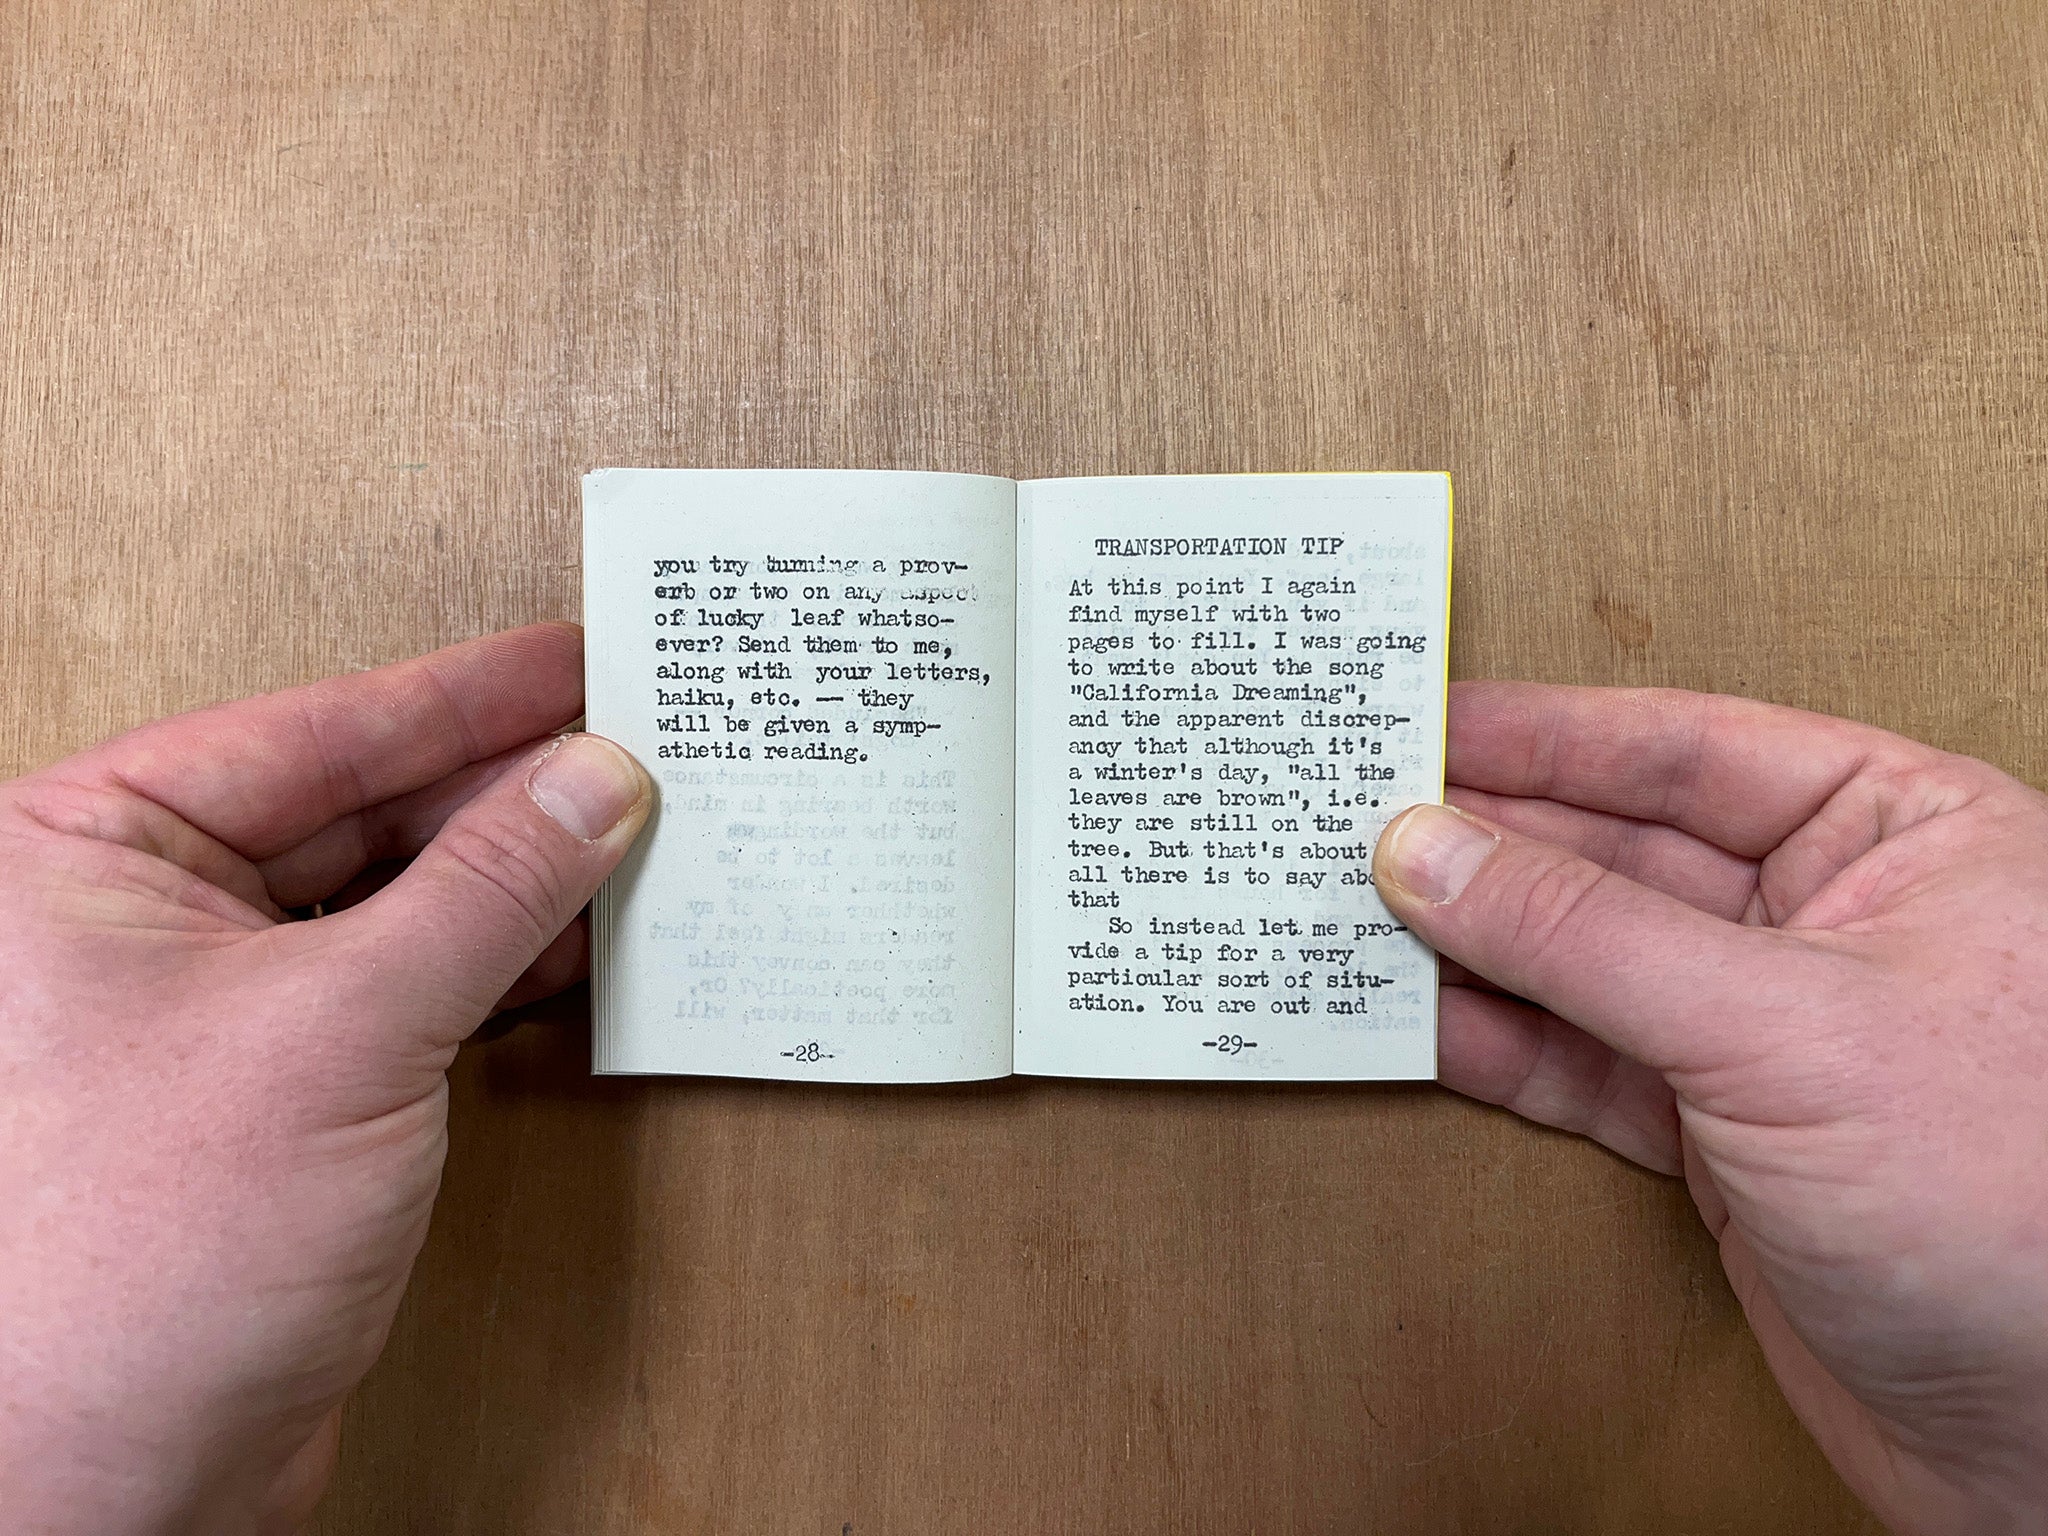 you try turning a prov-
erb or two on any aspect
of lucky leaf whatso-
ever? Send them to me,
along with your letters,
haiku, etc. -- they
will be given a symp-
athetic reading.
-28-
TRANSPORTATION TIP
At this point I again
find myself with two
pages to fill. I was going
to write about the song
"California Dreaming",
and the apparent discrep-
ancy that although it's
a winter's day, "all the
leaves are brown", i.e.
they are still on the
tree. But that's about
all there is to say
that
So instead let me pro-
vide a tip for a very
particular sort of situ-
ation. You are out and
-29-